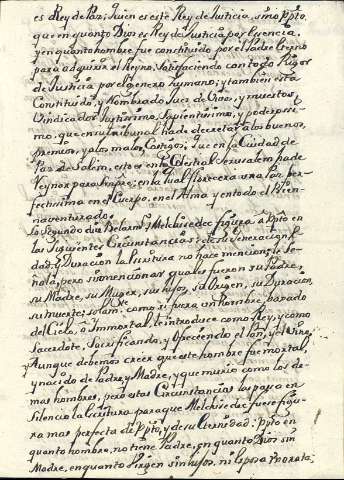 es Rey de Paz; Quien es este Rey de Justicia, sino Xpto,
que en quanto Dios es Rey de Justicia por Essencia,
y en quanto hombre fue constituido por el Padre Eterno
para adquirir el Reyno, satisfaciendo con todo Rigor
de Justicia por el genero humano; y tambien esta
Constituido, y Nombrado Jues de Vivos, y muertos
Vindicador Justissimo, Sapientissimo, y poderosissi-
mo, que en su tribunal ha de decretar a los buenos,
premios, y a los malos Castigos, Que en la Ciudad de
Paz de Salem, esto es en la Celestial Jerusalem ha de
Reynar para siempre; en la qual florecera una Paz per-
fectissima en el Cuerpo, en el Alma y en todo el Bien-
naventurado.
Lo Segundo dice Belarmº Melchisedec figura a Xpto en
las Siguientes Circunstancias: de su Generacion, E-
dad, y Duracion la Escritura no hace mencion, le Se-
ñala, pero sin mencionar quales fueron su Padre,
su Madre, su Muger, sus hijos, su Origen, su Duracion,
su muerte; solam.te como si fuera un hombre baxado
del Cielo, ò Immortal, le introduce como Rey, y como
Sacerdote, Sacrificando, y Ofreciendo el Pan, y el Vino,
y Aunque debemos creer que este hombre fue mortal,
y nacido de Padre, y Madre, y que murio como los de-
mas hombres, pero estas Circunstancias las passo en
Silencio la Escritura para que Melchisedec fuese figu-
ra mas perfecta de Xpto, y de su Eternidad: Xpto en
quanto hombre, no tiene Padre, en quanto Dios sin
Madre, en quanto Virgen sin hijos, ni Esposa